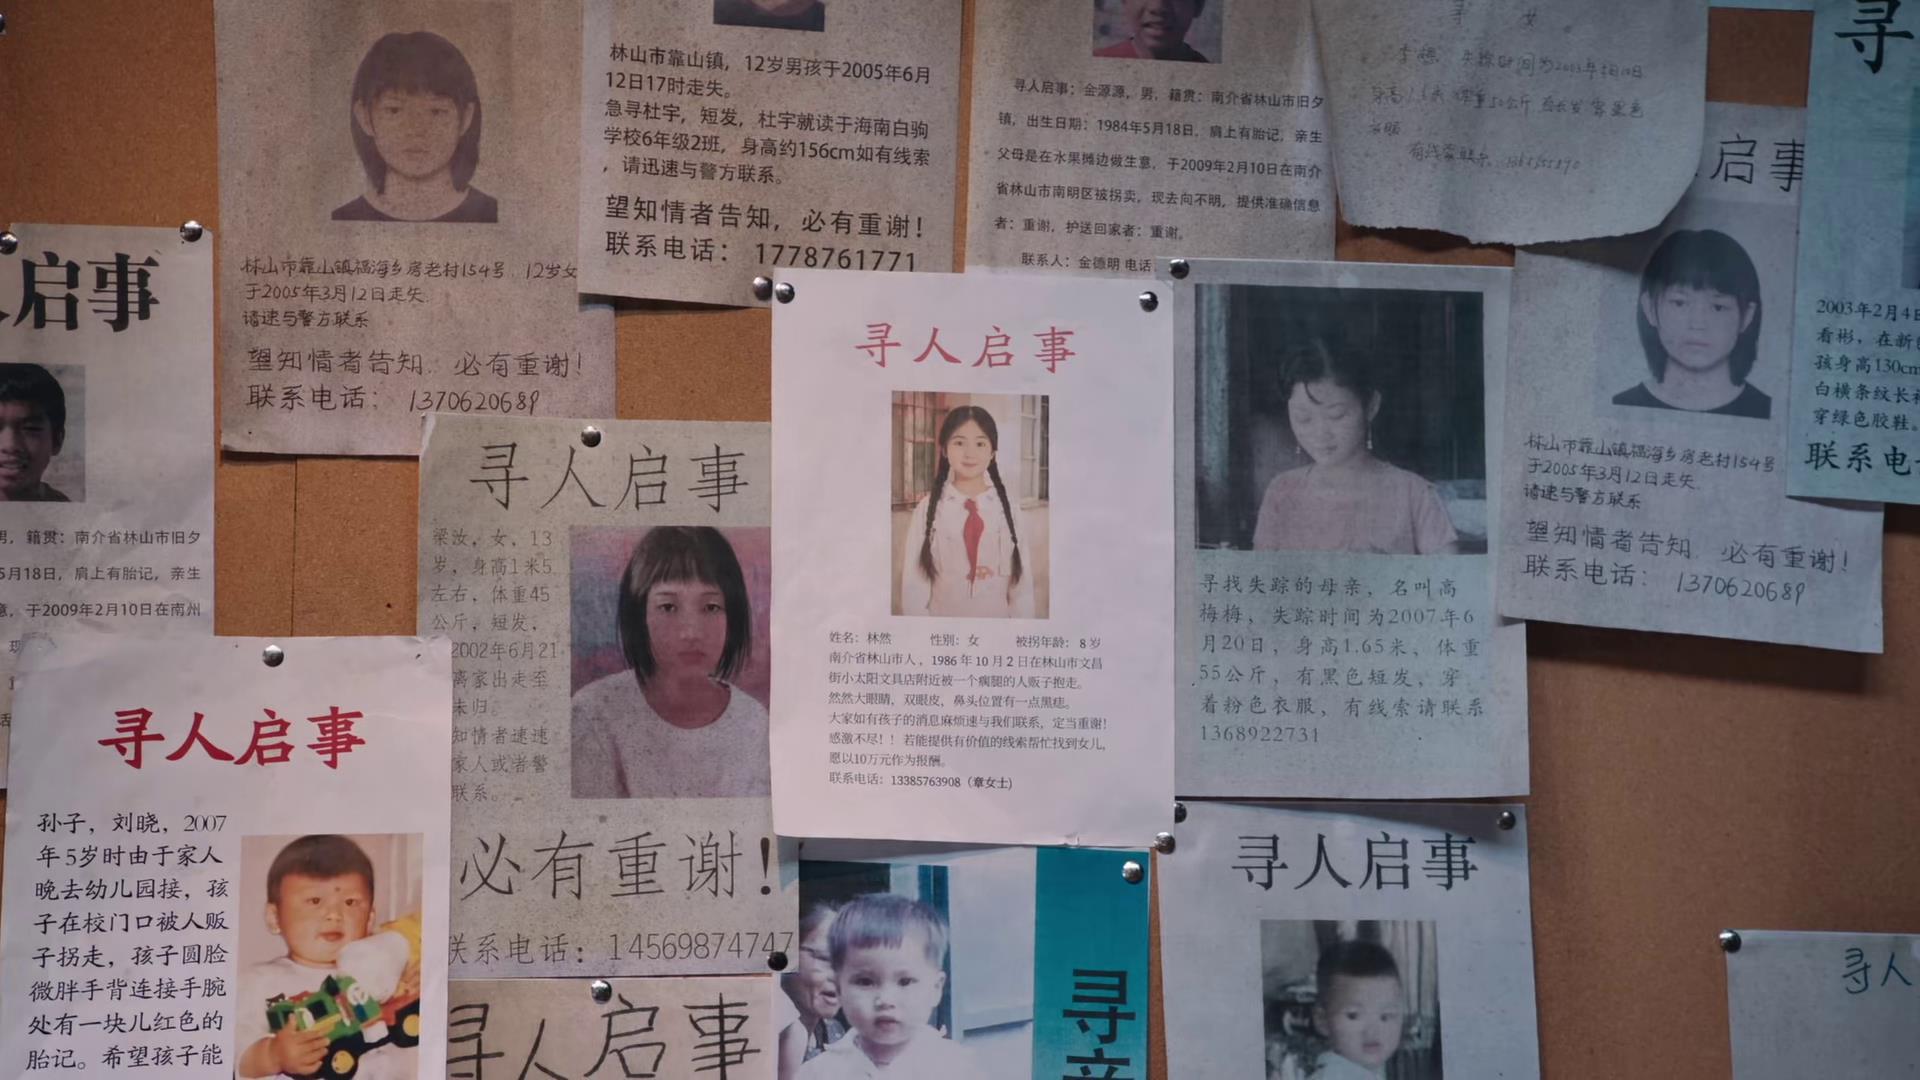 林山市靠山镇福海乡房老村154号 12岁女
于2005年3月12日走失
请速与警方联系
望知情者告知. 必有重谢!
联系电话: 1370620689
林山市靠山镇，12岁男孩于2005年6月
12日17时走失。
急寻杜宇，短发，杜宇就读于海南白驹
学校6年级2班，身高约156cm如有线索
，请迅速与警方联系。
望知情者告知，必有重谢!
联系电话: 1778761771
寻人启事：金源源，男，籍贯：南介省林山市旧夕
镇，出生日期：1984年5月18日，肩上有胎记，亲生
父母是在水果摊边做生意，于2009年2月10日在南介
省林山市南明区被拐卖，现去向不明，提供准确信息
者：重谢，护送回家者：重谢。
联系人：金德明 电话
寻 女
失踪时间为2003年
身高1.6米 体重50公斤
寻
启事
2003年2月4日
看彬，在新
孩身高130cm
白横条纹长
穿绿色胶鞋。
联系电
启事
男，籍贯：南介省林山市旧夕
5月18日，肩上有胎记，亲生
意，于2009年2月10日在南州
寻人启事
梁汝，女，13
岁，身高1米5
左右，体重45
公斤，短发，
2002年6月21
离家出走至
未归。
知情者速速
家人或者警
联系。
必有重谢!
联系电话: 14569874747
寻人启事
姓名：林然 性别：女 被拐年龄：8岁
南介省林山市人，1986年10月2日在林山市文昌
街小太阳文具店附近被一个瘸腿的人贩子抱走。
然然大眼睛，双眼皮，鼻头位置有一点黑痣。
大家如有孩子的消息麻烦速与我们联系，定当重谢!
感激不尽!！若能提供有价值的线索帮忙找到女儿，
愿以10万元作为报酬。
联系电话：13385763908（章女士)
寻找失踪的母亲，名叫高
梅梅，失踪时间为2007年6
月20日，身高1.65米，体重
55公斤，有黑色短发，穿
着粉色衣服，有线索请联系
1368922731
林山市靠山镇福海乡房老村154号
于2005年3月12日走失.
请速与警方联系
望知情者告知. 必有重谢!
联系电话: 1370620689
寻人启事
孙子，刘晓，2007
年5岁时由于家人
晚去幼儿园接，孩
子在校门口被人贩
子拐走，孩子圆脸
微胖手背连接手腕
处有一块儿红色的
胎记。希望孩子能
寻人启事
寻
寻人启事
寻人